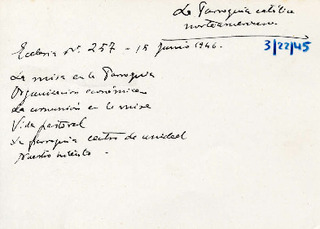 La Parroquia católica
norteamericana
Ecclesia nº 257 - 15 junio 1946.
3/22/45
La misa en la Parroquia
Organización económica
La comunión en la misa
Vida pastoral
La parroquia centro de unidad
Nuestro intento.